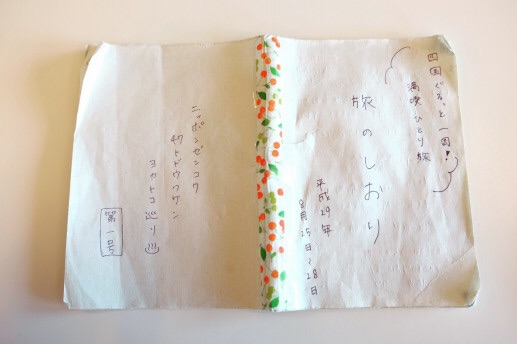 四国ぐるっと一周!
満喫ひとり旅
旅のしおり
平成29年
8月25日~28日
ニッポンゼンコク
47トドウフケン
ヨカトコ巡り
第一号